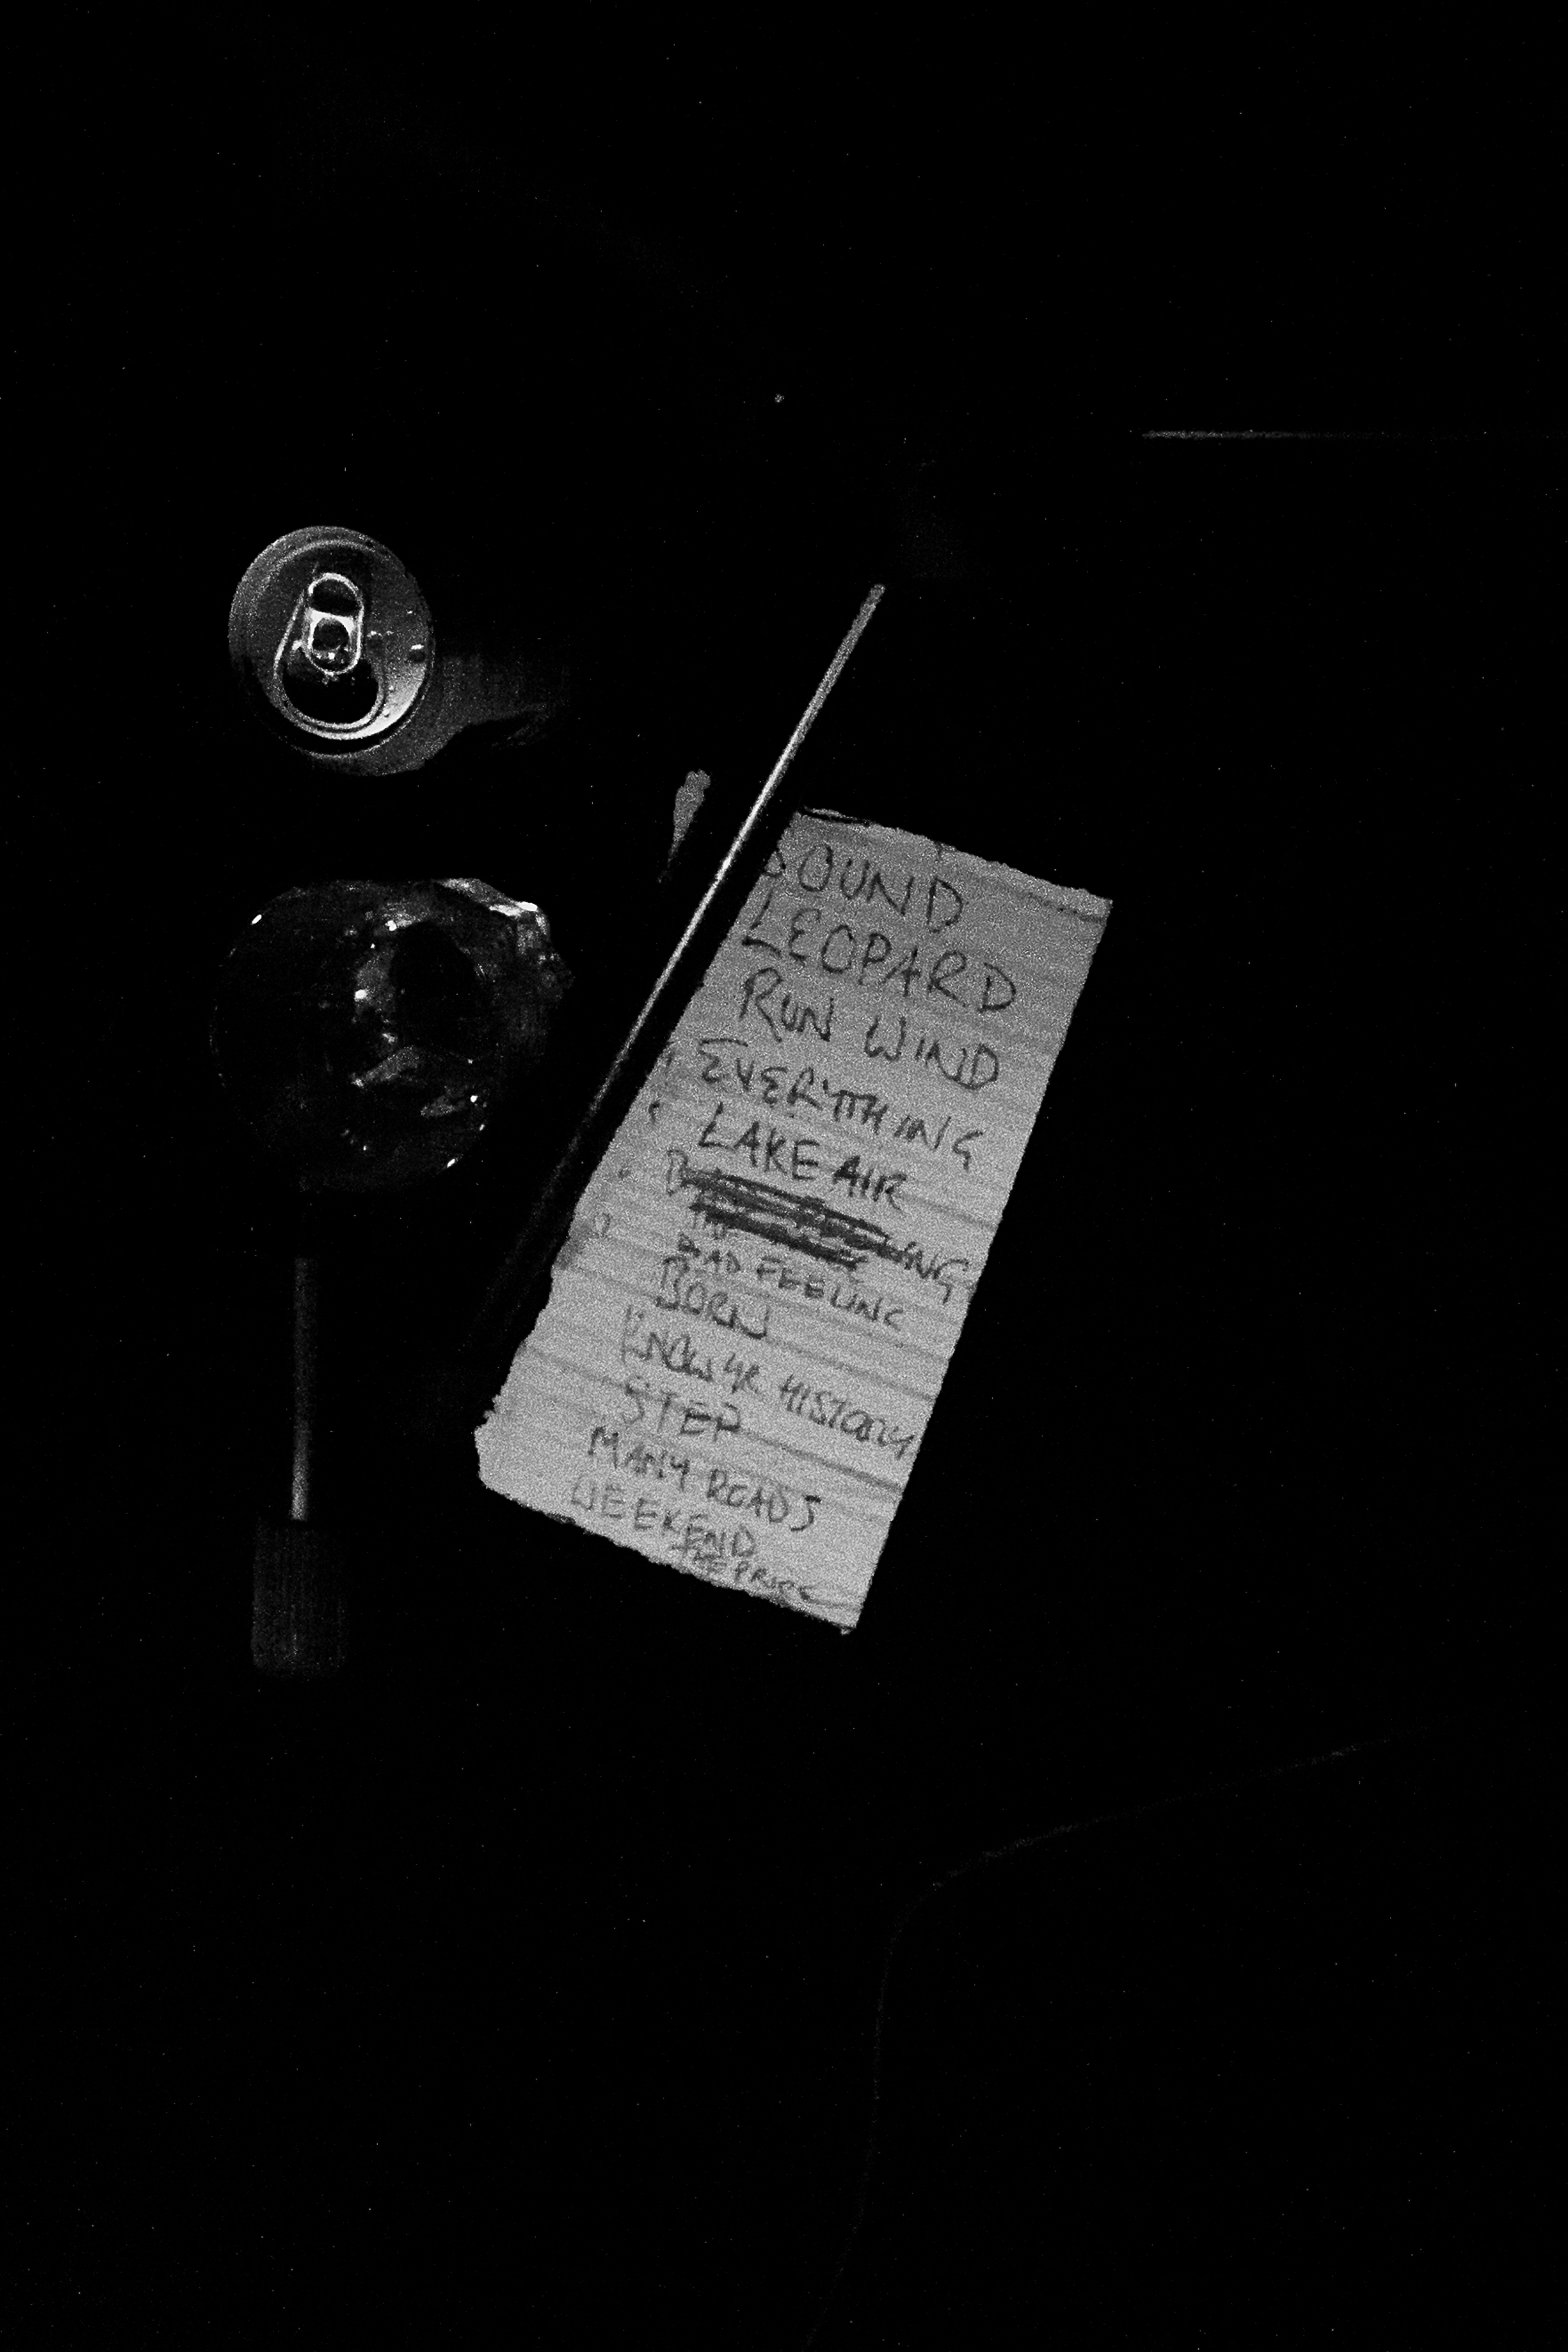 SOUND
LEOPARD
RUN WIND
EVERYTHING
LAKE AIR
BAD FEELING
BORN
KNOW YR HISTORY
STEP
MANY ROADS
WEEKEND
THE PRICE